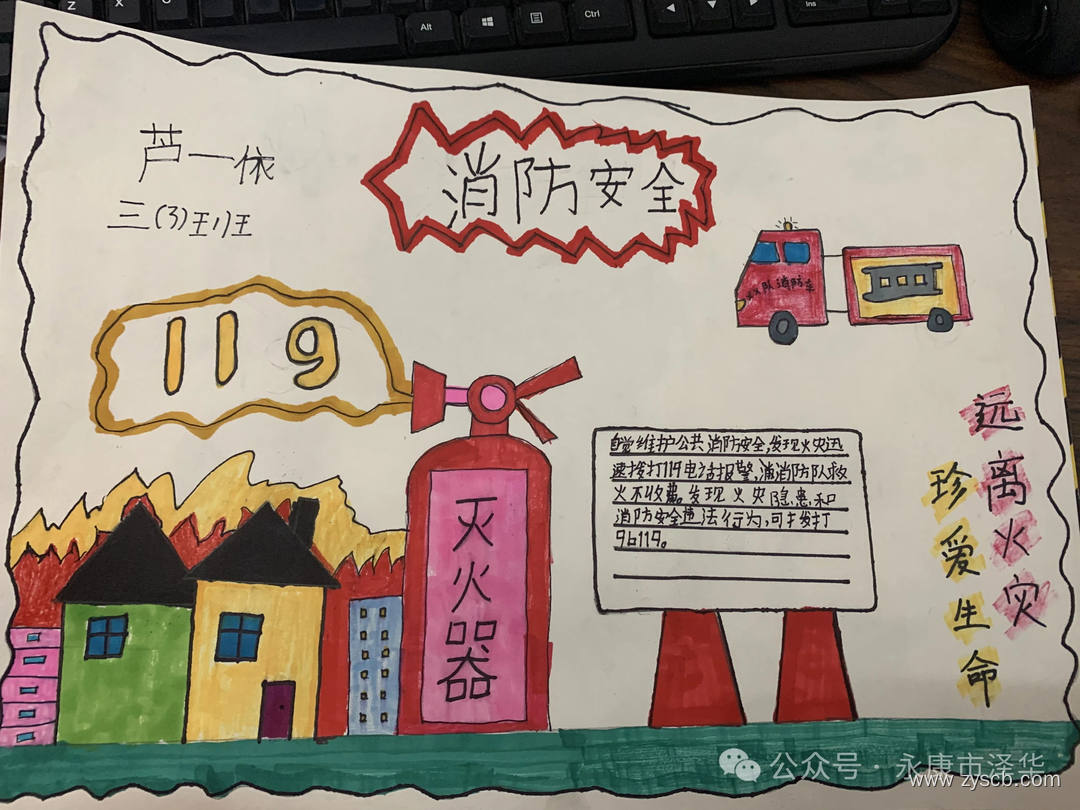 芦一依
三(3)班
消防安全
119
队消防车
灭火器
自觉维护公共消防安全,发现火灾迅
速拨打119电话报警,浦消防队救
火不收费。发现火灾隐患和
消防安全违法行为,可拨打
96119。
远离火灾
珍爱生命
Z
X
C
Alt
Ctrl
Ins
公众号·永康市泽华
www.zyscb.com